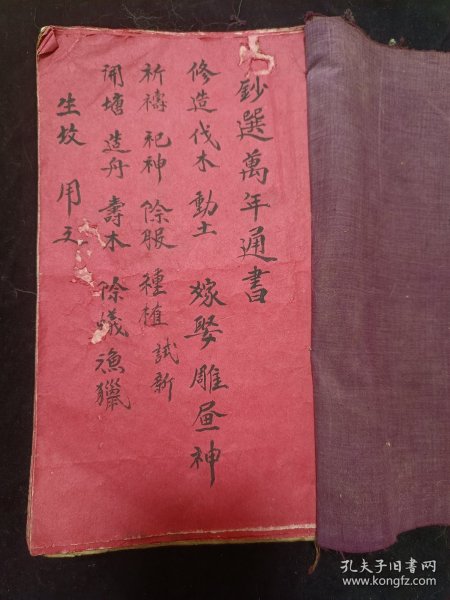 鈔選萬年通書
修造 伐木 動土 嫁娶 雕画神
祈禱 祀神 除服 種植 試新
開塘 造舟 壽木 除蟻 漁獵
生坟 用工
孔夫子旧书网
www.kongfz.com